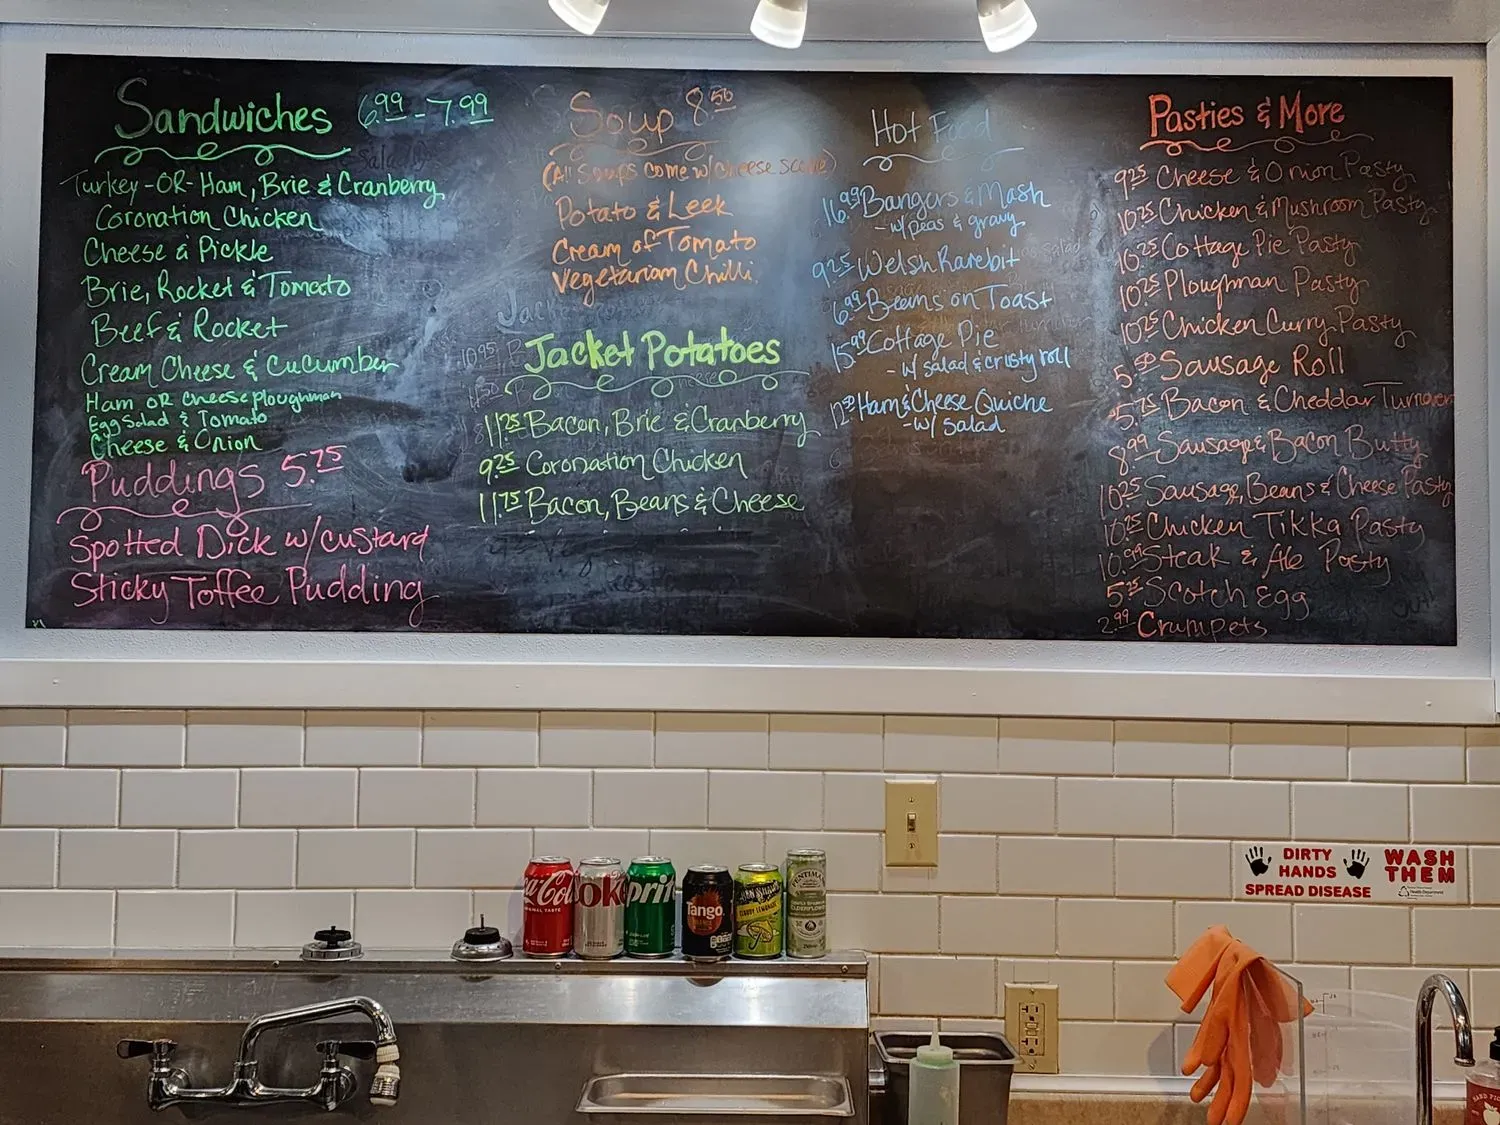 Sandwiches 6.99 - 7.99
Turkey -OR- Ham, Brie & Cranberry
Coronation Chicken
Cheese & Pickle
Brie, Rocket & Tomato
Beef & Rocket
Cream Cheese & Cucumber
Ham OR cheese ploughman
Egg Salad & Tomato
Cheese & Onion
Puddings 5.75
Spotted Dick w/custard
Sticky Toffee Pudding
Soup 8.50
(All Soups come w/ cheese scone)
Potato & Leek
Cream of Tomato
Vegetarian Chilli
Jacket Potatoes
11.25 Bacon, Brie & Cranberry
9.25 Coronation Chicken
11.75 Bacon, Beans & Cheese
Hot Food
16.99 Bangers & Mash
- w/ peas & gravy
9.25 Welsh Rarebit
6.99 Beans on Toast
15.99 Cottage Pie
- w/ salad & crusty roll
Ham & Cheese Quiche
- w/ Salad
Pasties & More
9.25 Cheese & Onion Pasty
10.25 Chicken & Mushroom Pasty
10.25 Cottage Pie Pasty
10.25 Ploughman Pasty
10.25 Chicken Curry Pasty
5.50 Sausage Roll
5.75 Bacon & Cheddar Turnover
8.99 Sausage & Bacon Butty
10.25 Sausage, Beans & Cheese Pasty
10.25 Chicken Tikka Pasty
10.99 Steak & Ale Pasty
5.25 Scotch Egg
2.99 Crumpets
Coca-Cola
Coke
Sprite
Tango
CLOUDY LEMONADE
FENTIMANS
DIRTY
HANDS
SPREAD DISEASE
WASH
THEM